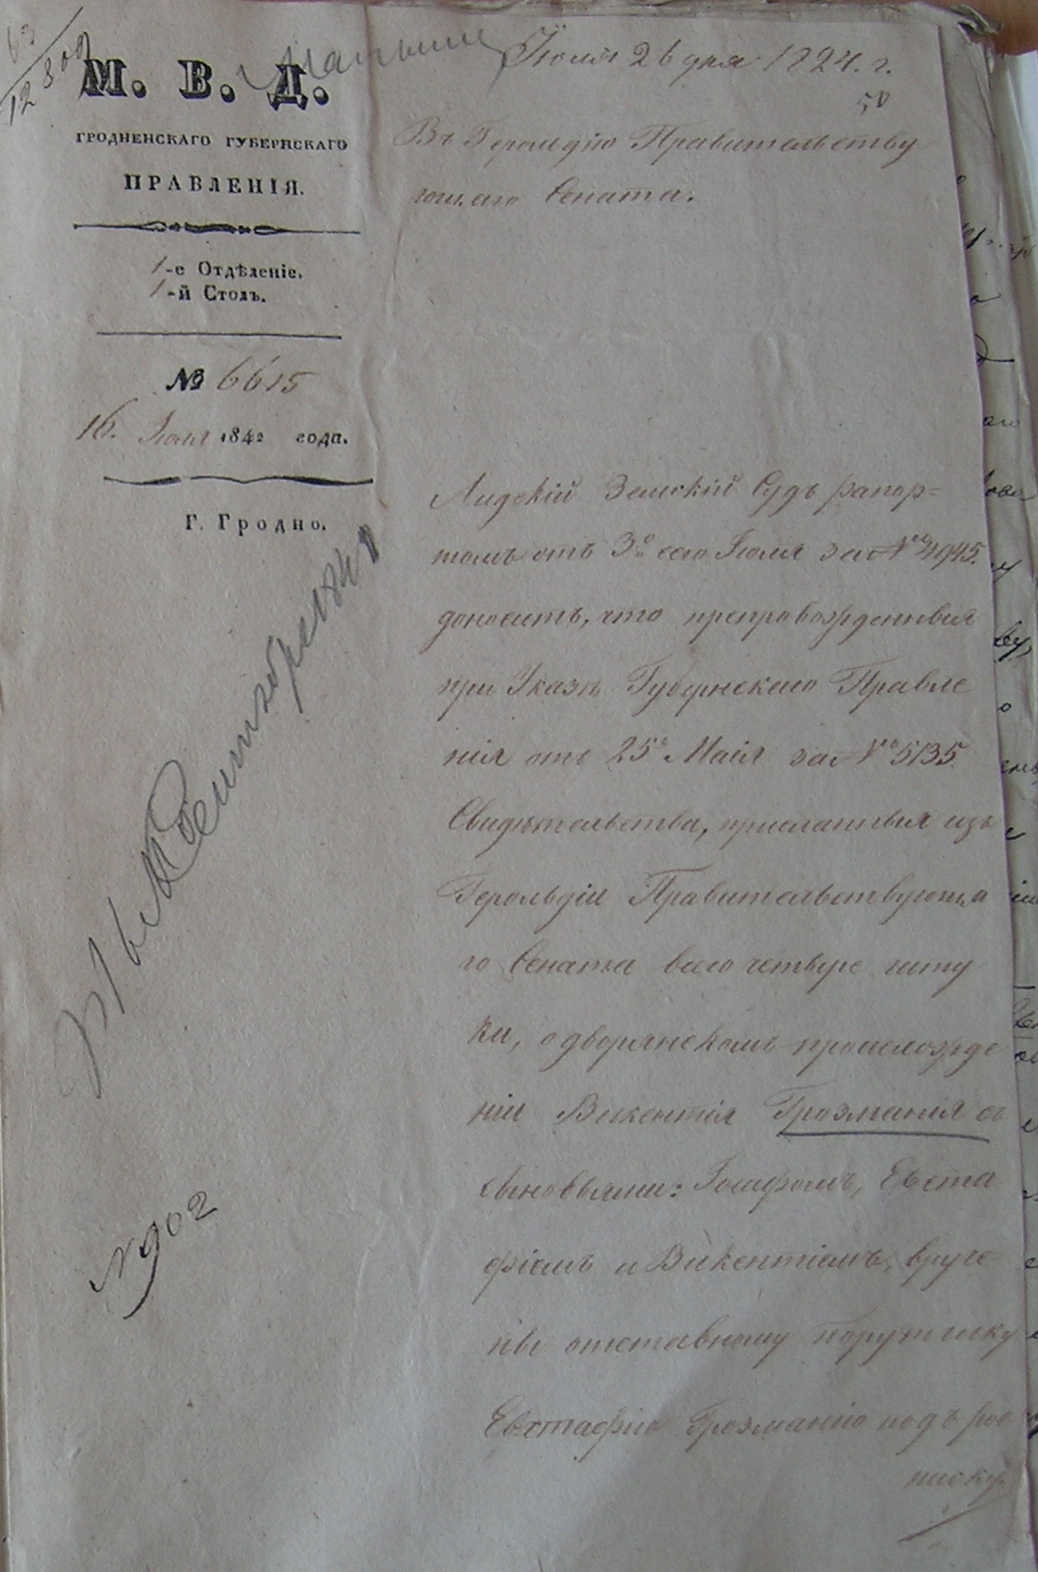 М. В. Д.
ГРОДНЕНСКАГО ГУБЕРНСКАГО
ПРАВЛЕНІЯ.
1-е Отдѣленіе.
1-й Столъ.
№ 6615
16. Іюля 1842 года.
Г. Гродно.
№ 902
Іюля 26 дня 1824. г.
50
Въ Герольдію Правительству
ющаго Сената.
Лидскій Земскій Судъ рапор=
томъ отъ 3го сего Іюля за № 4945.
доноситъ, что препровожденныя
при Указѣ Губернскаго Правле
нія отъ 25го Маія за № 5135
Свидѣтельства, присланныя изъ
Герольдіи Правительствующа
го Сената всего четыре шту
ки, о дворянскомъ происхожде
ніи Викентія Грозманія съ
сыновьями: Іосифомъ, Евста
фіемъ и Викентіемъ, вруче
ны отставному Поручику
Евстафію Грозманію подъ рос
писку.